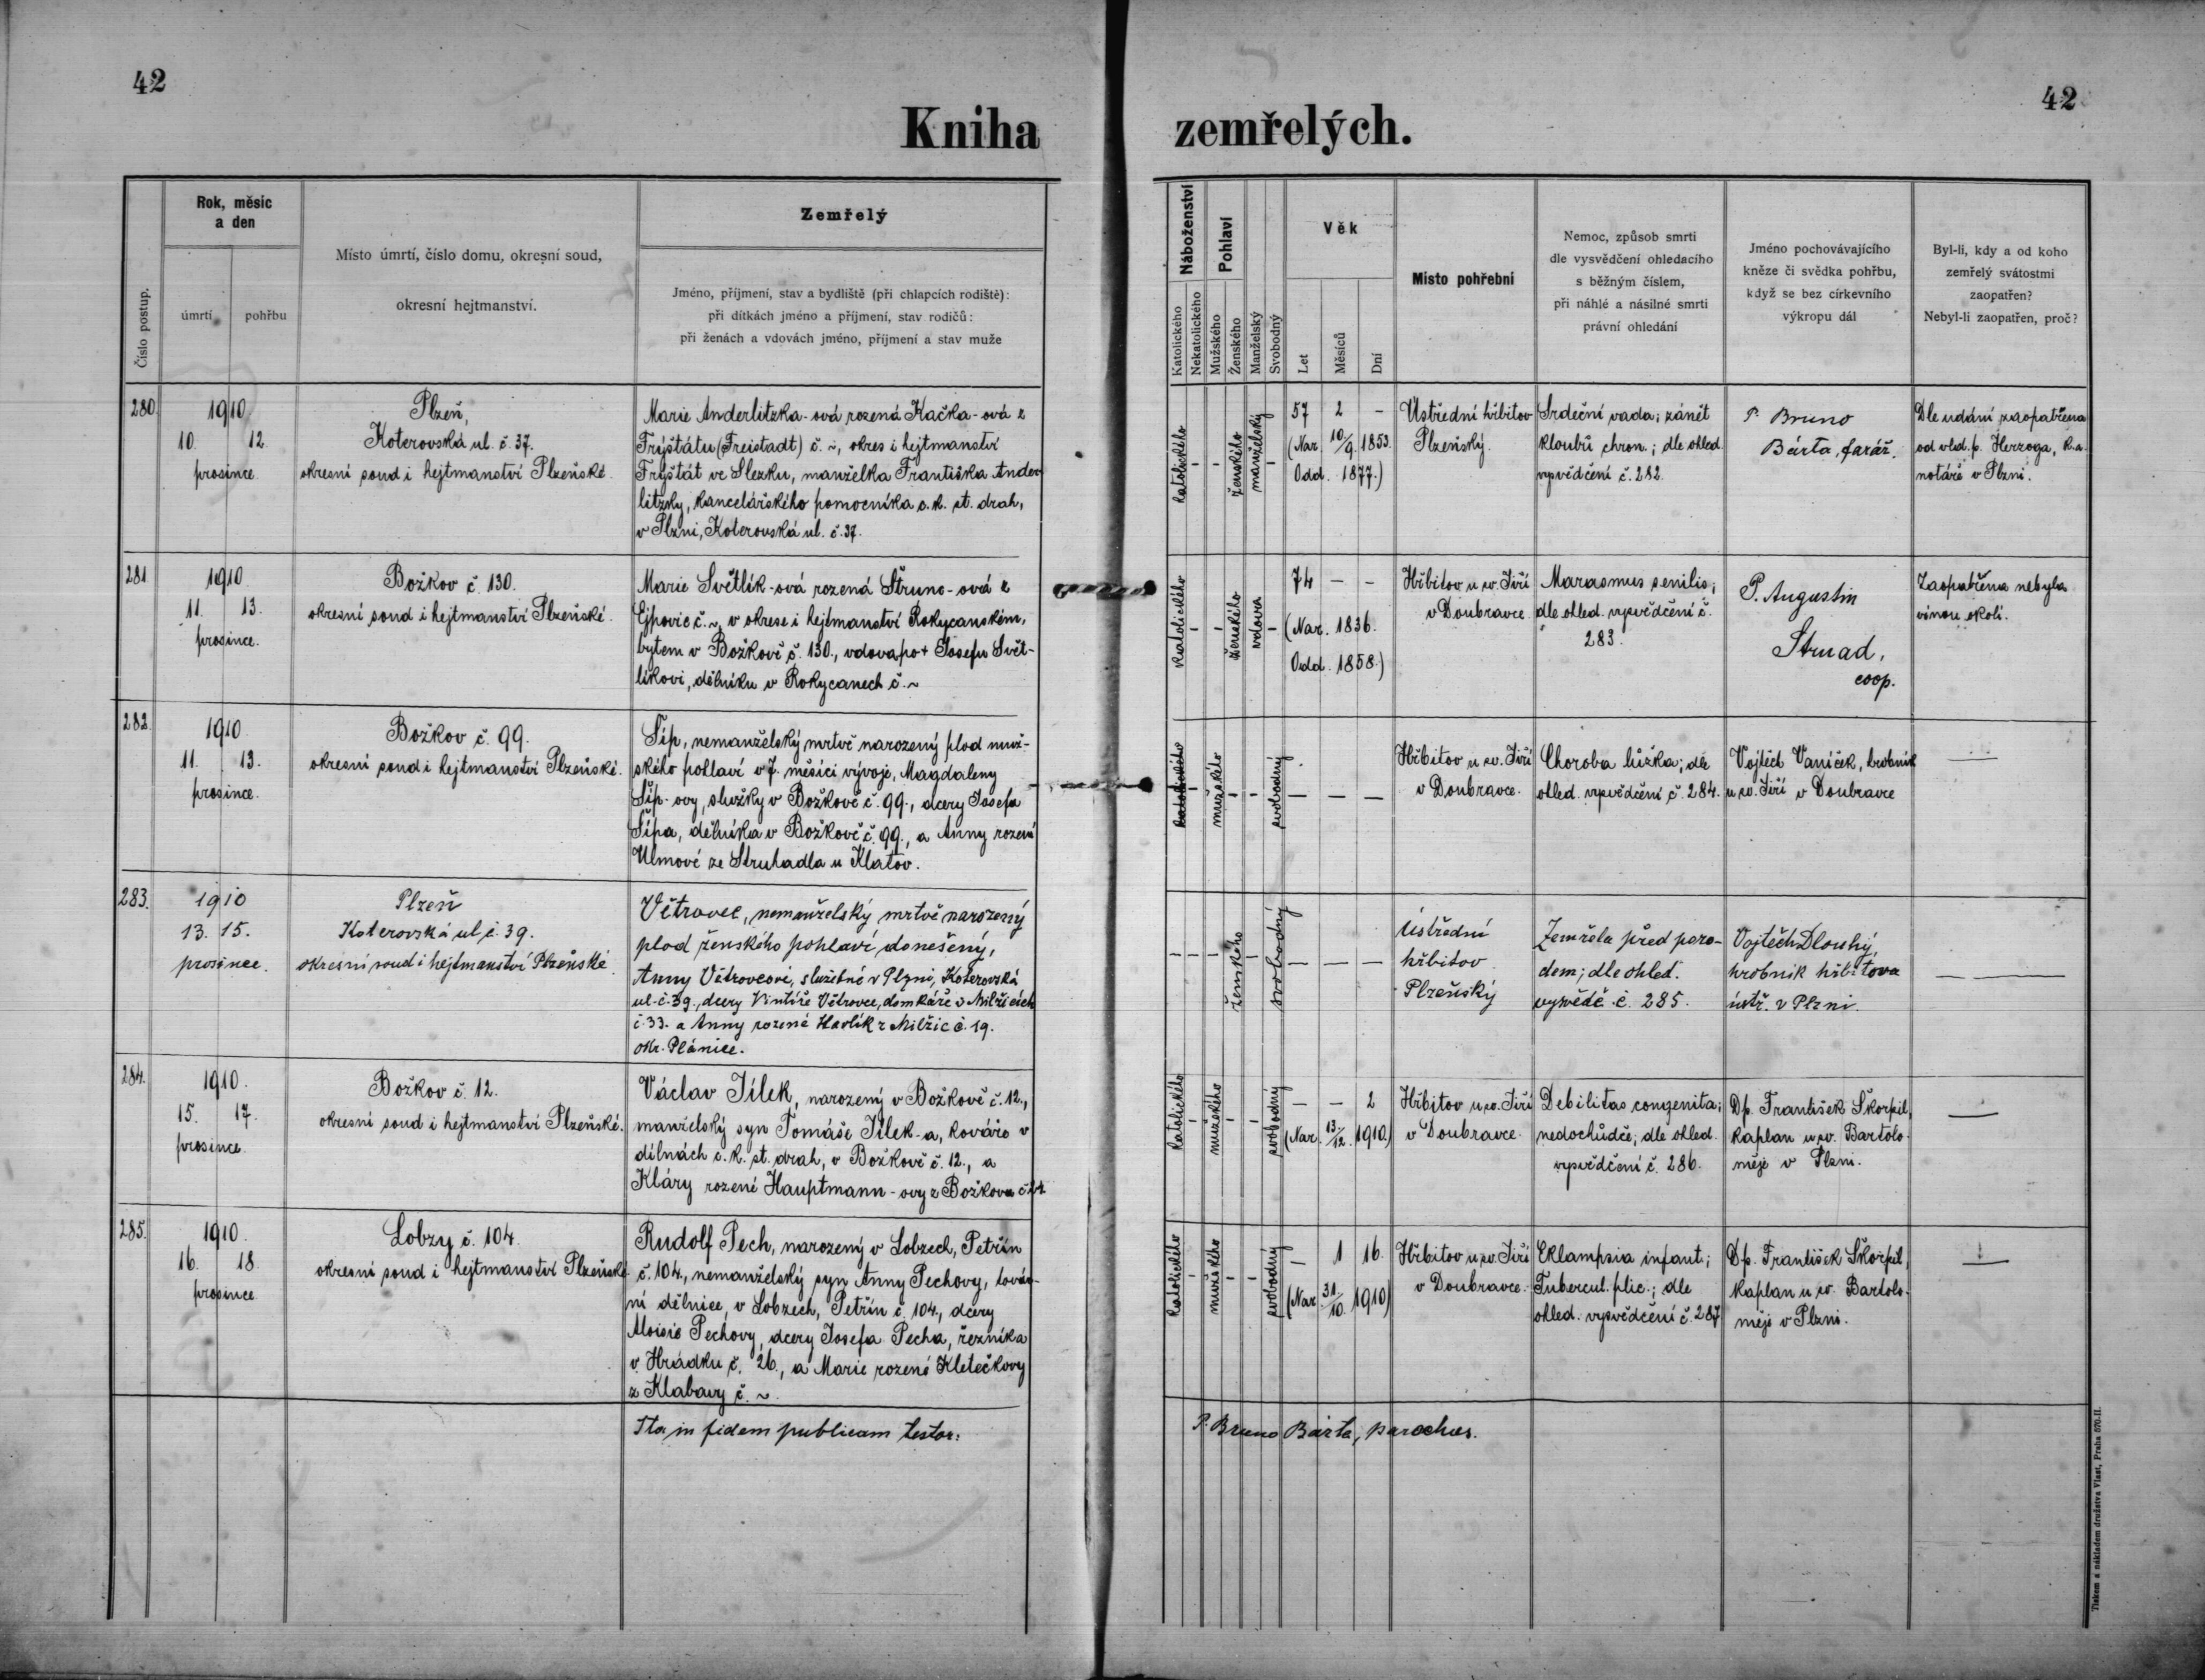 42
42
Kniha
zemřelých.
Číslo postup.
Rok, měsíc
a den
úmrtí
pohřbu
Místo úmrtí, číslo domu, okresní soud,
okresní hejtmanství.
Zemřelý
Jméno, příjmení, stav a bydliště (při chlapcích rodiště):
při dítkách jméno a příjmení, stav rodičů:
při ženách a vdovách jméno, příjmení a stav muže
Náboženství
Katolického
Nekatolického
Pohlaví
Mužského
Ženského
Manželský
Svobodný
Věk
Let
Měsíců
Dní
Místo pohřební
Nemoc, způsob smrti
dle vysvědčení ohledacího
s běžným číslem,
při náhlé a násilné smrti
právní ohledání
Jméno pochovávajícího
kněze či svědka pohřbu,
když se bez církevního
výkropu dál
Byl-li, kdy a od koho
zemřelý svátostmi
zaopatřen?
Nebyl-li zaopatřen, proč?
280.
1910
10. 12.
prosince
Plzeň,
Koterovská ul. č. 37.
okresní soud i hejtmanství Plzeňské.
Marie Anderlitzka-ová rozená Kačka-ová z
Frýštátu (Freistadt) č. ~, okres i hejtmanství
Frýštát ve Slezku, manželka Františka Ander
litzky, kancelářského pomocníka c. k. st. drah,
v Plzni, Koterovská ul. č. 37.
katolického
–
–
ženského
manželský
–
57 2 –
(Nar. 10/9. 1853.
Odd. 1877.)
Ústřední hřbitov
Plzeňský.
Srdeční vada; zánět
kloubů chron.; dle ohled.
vysvědčení č. 282.
P. Bruno
Bárta, farář.
Dle udání zaopatřena
od vld. p. Herzoga, k. a.
notáře v Plzni.
281.
1910.
11. 13.
prosince.
Božkov č. 130.
okresní soud i hejtmanství Plzeňské.
Marie Světlík-ová rozená Štrunc-ová z
Ejpovic č. ~, v okrese i hejtmanství Rokycanském,
bytem v Božkově č. 130., vdova po + Josefu Svět-
líkovi, dělníku v Rokycanech č. ~
katolického
–
–
ženského
vdova
–
74 – –
(Nar. 1836.
Odd. 1858.)
Hřbitov u sv. Jiří
v Doubravce
Marasmus senilis;
dle ohled. vysvědčení č.
283.
P. Augustin
Strnad,
coop.
Zaopatřena nebyla
vinou okolí.
282.
1910
11. 13.
prosince.
Božkov č. 99.
okresní soud i hejtmanství Plzeňské.
Šíp, nemanželský mrtvě narozený plod muž-
ského pohlaví v 7. měsíci vývoje, Magdaleny
Šíp-ovy, služky v Božkově č. 99., dcery Josefa
Šípa, dělníka v Božkově č. 99., a Anny rozené
Ulmové ze Struhadla u Klatov.
katolického
–
mužského
–
–
svobodný
– – –
Hřbitov u sv. Jiří
v Doubravce.
Choroba lůžka; dle
ohled. vysvědčení č. 284.
Vojtěch Vaníček, hrobník
u sv. Jiří v Doubravce
—
283.
1910
13. 15.
prosince.
Plzeň
Koterovská ul. č. 39.
okresní soud i hejtmanství Plzeňské.
Větrovec, nemanželský mrtvě narozený
plod ženského pohlaví donešený,
Anny Větrovcové, služebné v Plzni, Koterovská
ul. č. 39., dcery Vintíře Větrovce, domkáře v Milžicích
č. 33. a Anny rozené Havlík z Milžic č. 19.
okr. Plánice.
–
–
–
ženského
–
svobodný
– – –
Ústřední
hřbitov
Plzeňský
Zemřela před poro-
dem; dle ohled.
vysvěd. č. 285.
Vojtěch Dlouhý,
hrobník hřbitova
ústř. v Plzni.
—
284.
1910.
15. 17.
prosince
Božkov č. 12.
okresní soud i hejtmanství Plzeňské.
Václav Jílek, narozený v Božkově č. 12.,
manželský syn Tomáše Jílek-a, kováře v
dílnách c. k. st. drah, v Božkově č. 12., a
Kláry rozené Hauptmann-ovy z Božkova č.
katolického
–
mužského
–
–
svobodný
– – 2
(Nar. 13/12. 1910.)
Hřbitov u sv. Jiří
v Doubravce.
Debilitas congenita;
nedochůdče; dle ohled.
vysvědčení č. 286.
Dp. František Škorpil,
kaplan u sv. Bartolo-
měje v Plzni.
—
285.
1910.
16. 18.
prosince
Lobzy č. 104
okresní soud i hejtmanství Plzeňské.
Rudolf Pech, narozený v Lobzech, Petřín
č. 104., nemanželský syn Anny Pechovy, továr-
ní dělnice, v Lobzech, Petřín č. 104., dcery
Aloisie Pechovy, dcery Josefa Pecha, řezníka
v Hrádku č. 26., a Marie rozené Kletečkovy
z Klabavy č. ~.
katolického
–
mužského
–
–
svobodný
– 1 16.
(Nar. 31/10. 1910)
Hřbitov u sv. Jiří
v Doubravce.
Eklampsia infant.;
Tubercul. plic.; dle
ohled. vysvědčení č. 287
Dp. František Škorpil,
kaplan u sv. Bartolo-
měje v Plzni.
—
Ita in fidem publicam testor:
P. Bruno Bárta, parochus.
Tiskem a nákladem družstva Vlast, Praha 570-II.